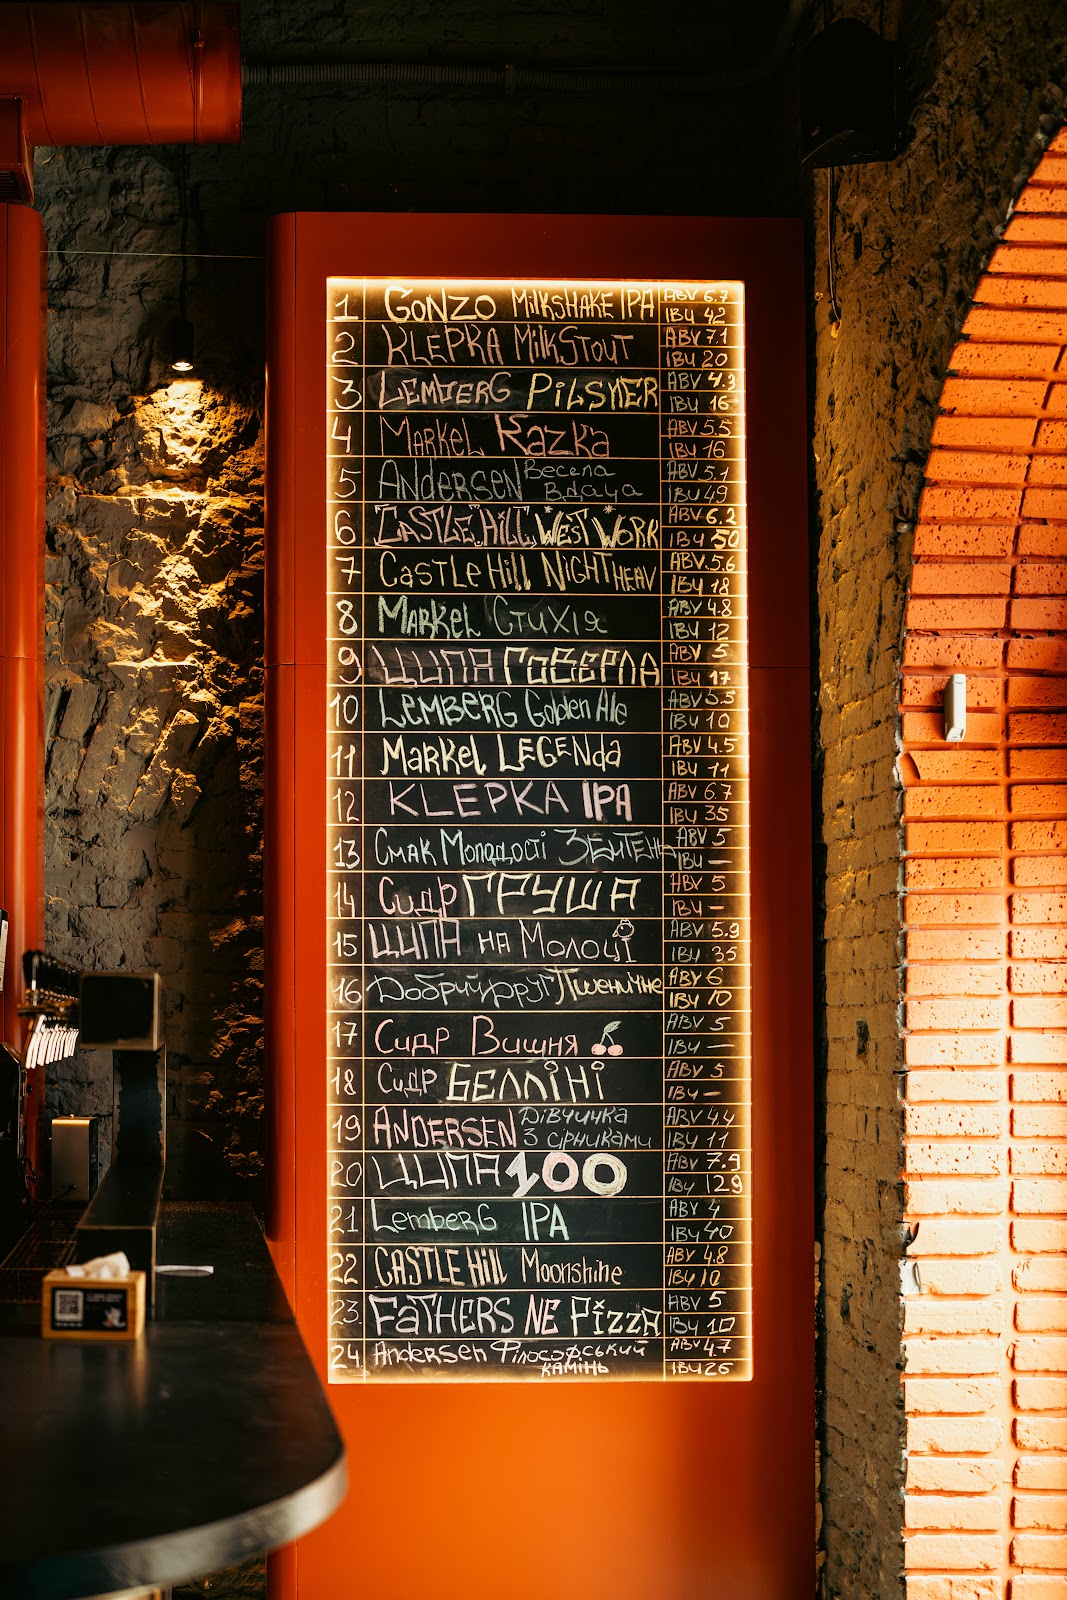 1 GONZO MILKSHAKE IPA ABV 6.7
IBU 42
2 KLEPKA MILK STOUT ABV 7.1
IBU 20
3 LEMBERG PILSNER ABV 4.3
IBU 16
4 MARKEL KAZKA ABV 5.5
IBU 16
5 ANDERSEN Весела ABV 5.1
Вдача IBU 49
6 CASTLE HILL WEST WORK ABV 6.2
IBU 50
7 CASTLE HILL NIGHT HEAV ABV 5.6
IBU 18
8 MARKEL Стихія ABV 4.8
IBU 12
9 ЦИПА ГОВЕРЛА ABV 5
IBU 17
10 LEMBERG Golden Ale ABV 5.5
IBU 10
11 MARKEL LEGENda ABV 4.5
IBU 11
12 KLEPKA IPA ABV 6.7
IBU 35
13 Смак Молодості ЗБИТЕНЬ ABV 5
IBU —
14 Сидр ГРУША ABV 5
IBU —
15 ЦИПА на Молоці ABV 5.9
IBU 35
16 Добрий друг Пшеничне ABV 6
IBU 10
17 Сидр Вишня ABV 5
IBU —
18 Сидр БЕЛЛІНІ ABV 5
IBU —
19 ANDERSEN Дівчинка ABV 4.4
з сірниками IBU 11
20 ЦИПА 100 ABV 7.9
IBU 129
21 LEMBERG IPA ABV 4
IBU 40
22 CASTLE HILL Moonshine ABV 4.8
IBU 10
23 FATHERS NE PIZZA ABV 5
IBU 10
24 Andersen Філософський ABV 4.7
КАМІНЬ IBU 26